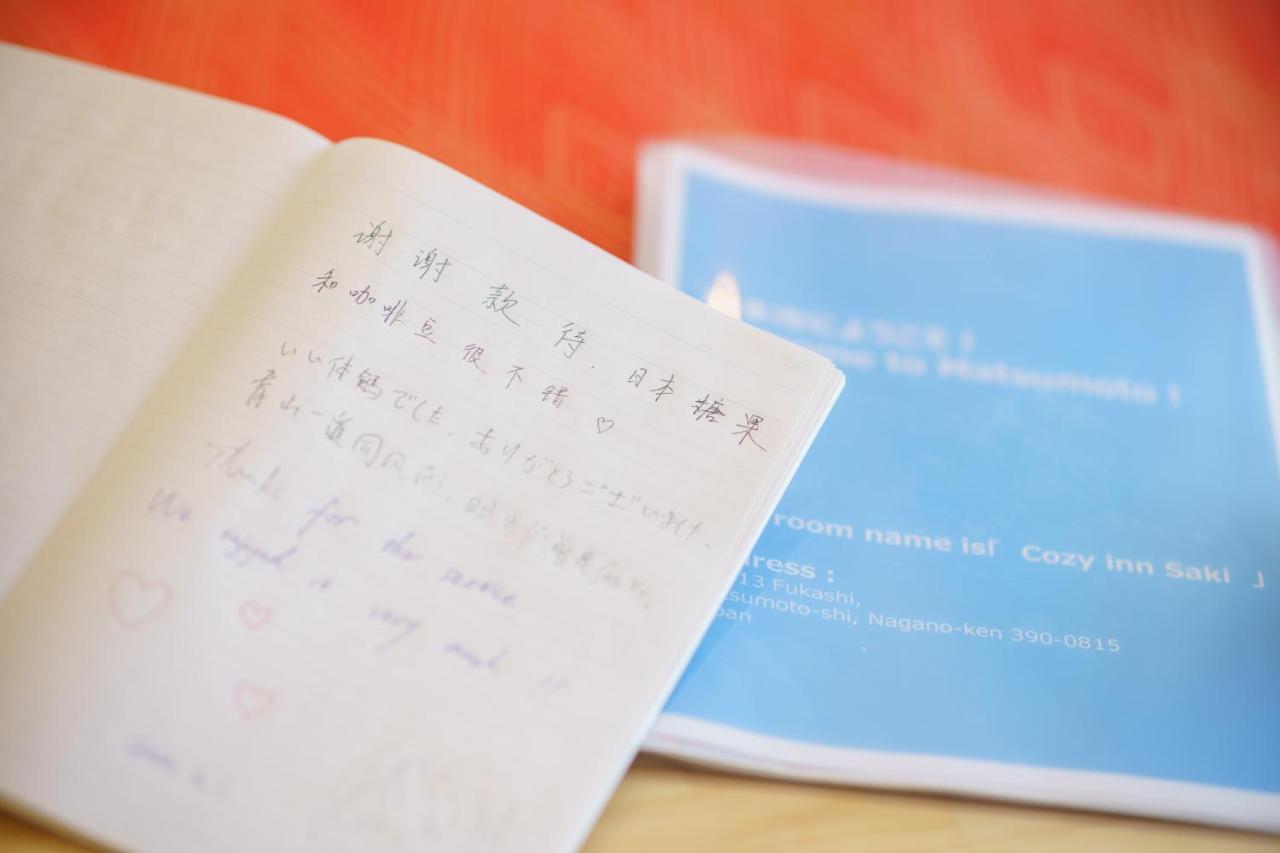 谢谢款待.日本糖果
和咖啡豆很不错♡
いい体験でした.ありがとうございました.
Thanks for the service
We enjoyed it very much
to Matsumoto !
room name is「 Cozy inn Saki 」
ress :
13 Fukashi,
tsumoto-shi, Nagano-ken 390-0815
pan